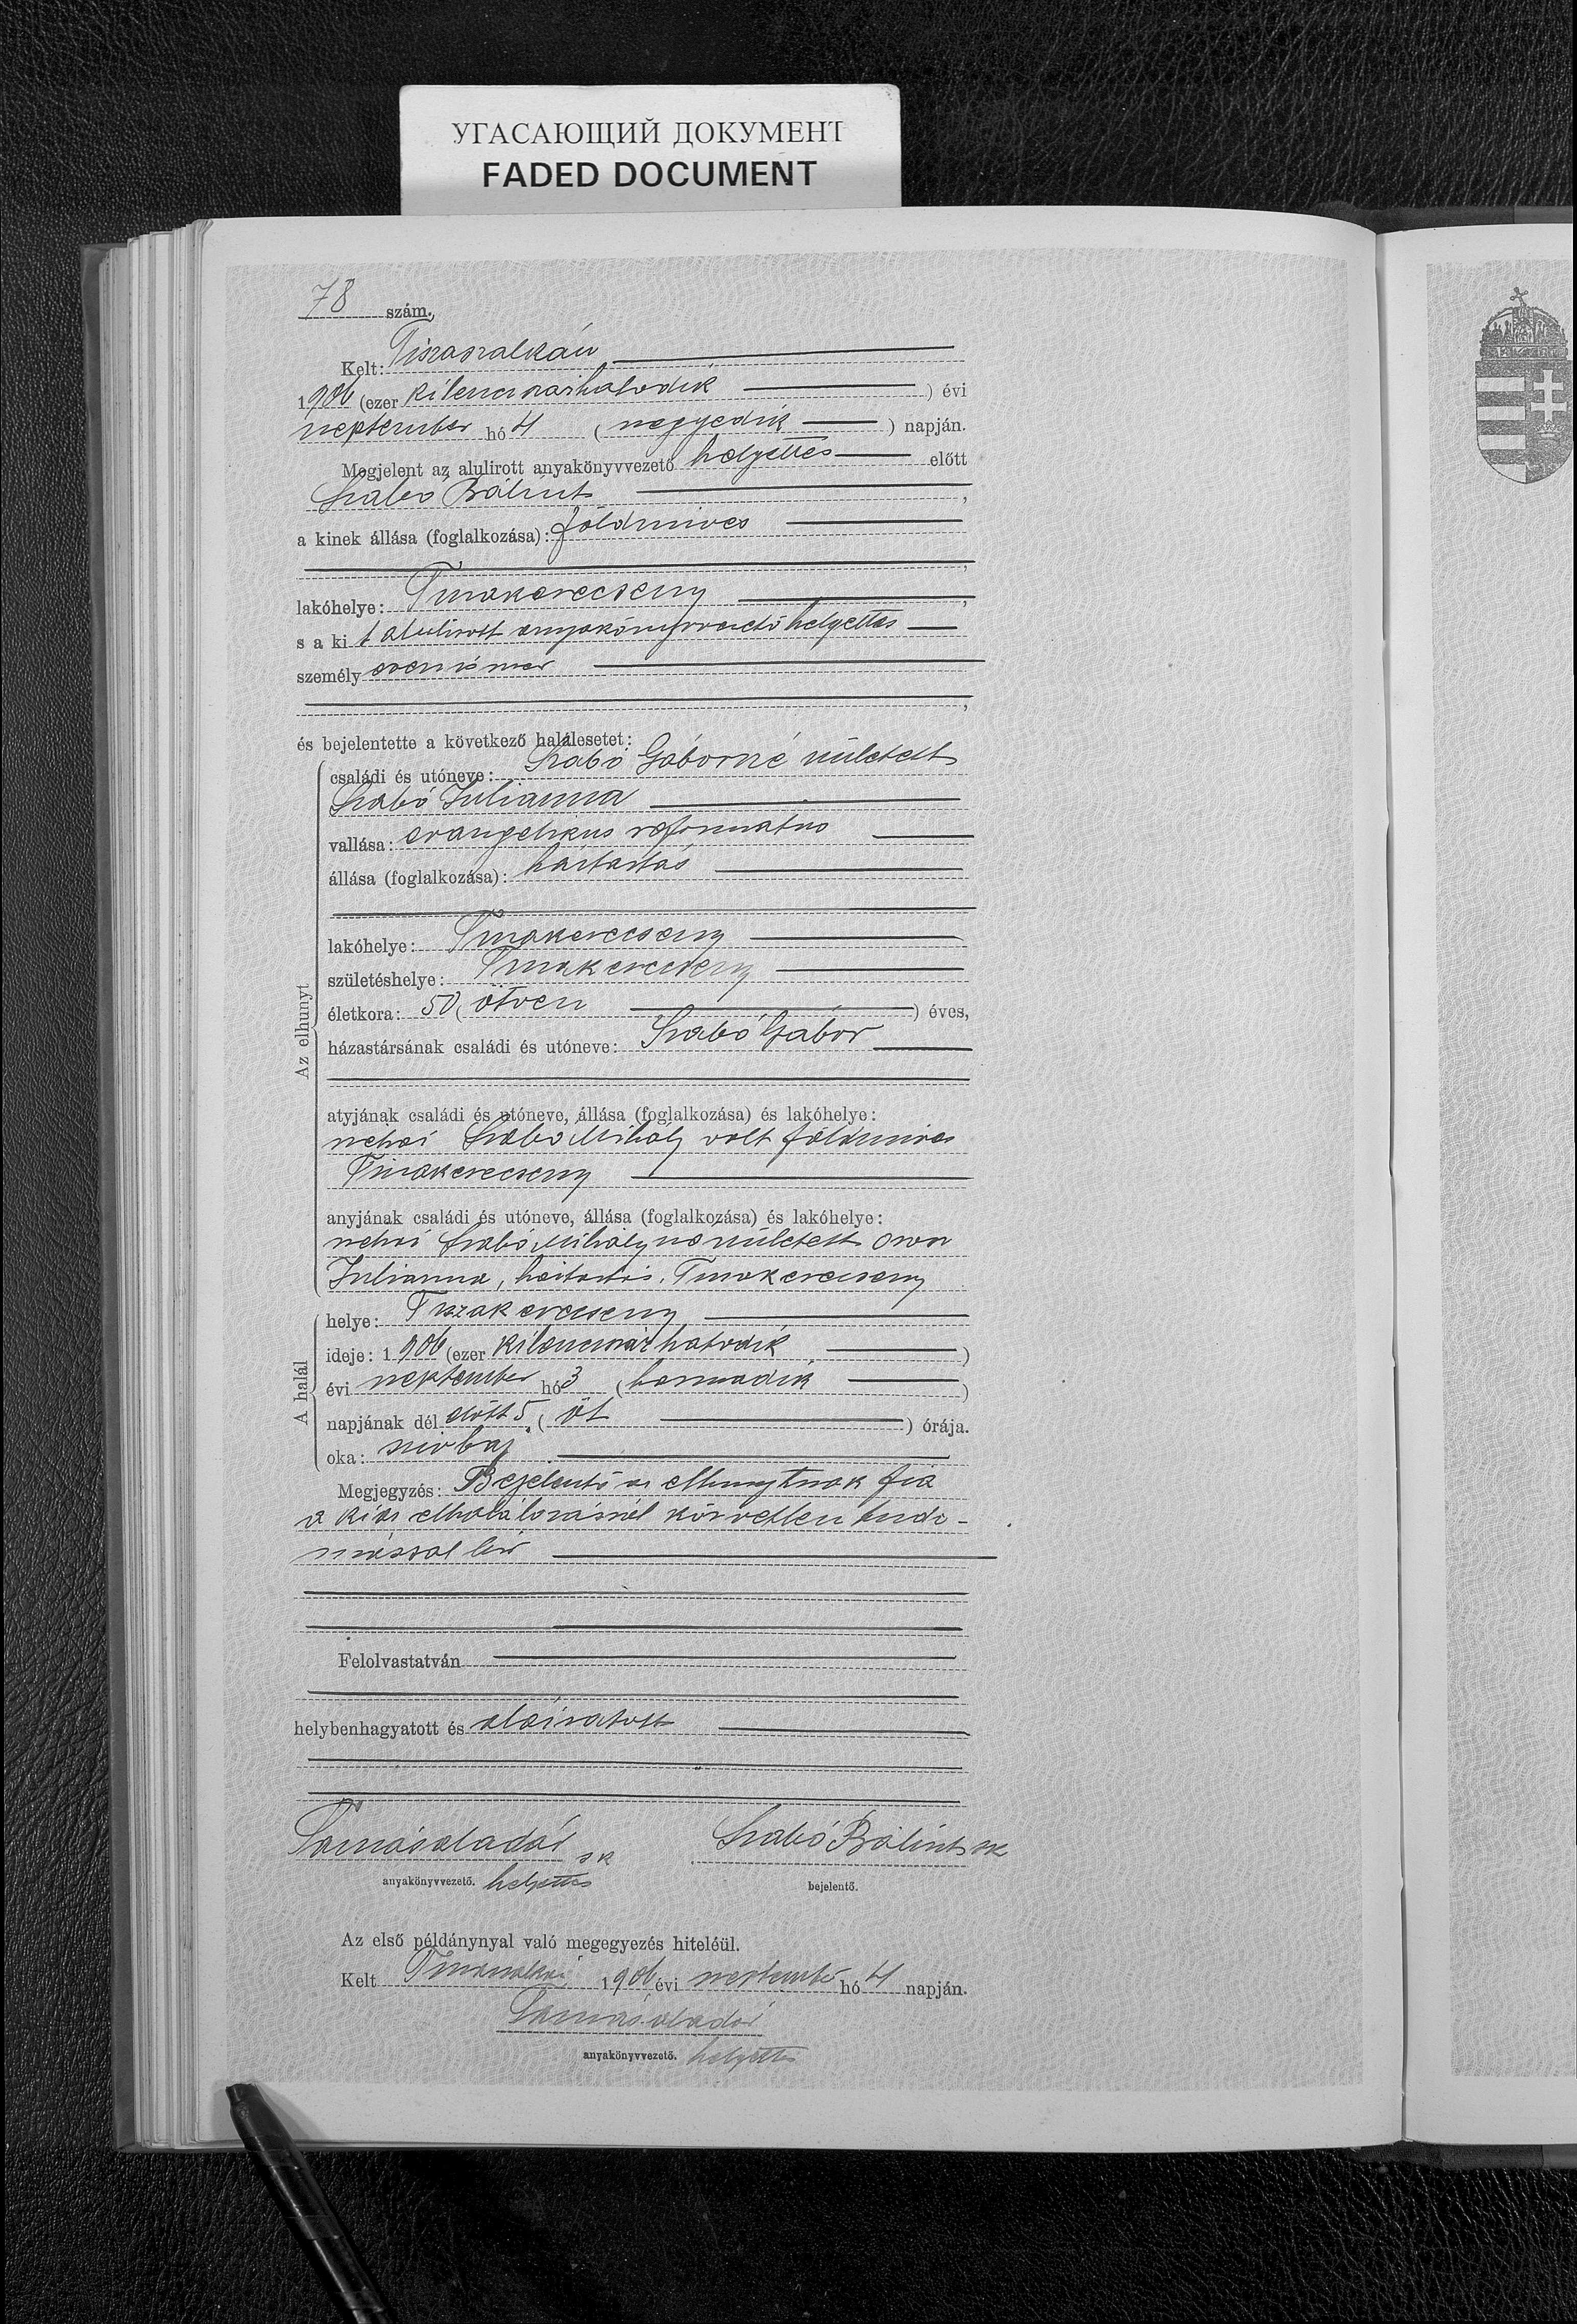 УГАСАЮЩИЙ ДОКУМЕНТ
FADED DOCUMENT
78 szám.
Kelt: Tiszaszalkán
1906 (ezer kilencszázhatodik ) évi
szeptember hó 4 ( negyedik ) napján.
Megjelent az alulirott anyakönyvvezető helyettes előtt
Szabó Bálint ,
a kinek állása (foglalkozása): földmives
,
lakóhelye: Tiszakerecseny ,
s a ki t alulirott anyakönyvvezető helyettes
személy esen ismer
,
és bejelentette a következő halálesetet:
családi és utóneve: Szabó Gáborné született
Szabó Julianna
vallása: evangelikus reformatus
állása (foglalkozása): háztartás
lakóhelye: Tiszakerecseny
születéshelye: Tiszakerecseny
életkora: 50 ( ötven ) éves,
házastársának családi és utóneve: Szabó Gábor
Az elhunyt
atyjának családi és utóneve, állása (foglalkozása) és lakóhelye:
néhai Szabó Mihály volt földmives
Tiszakerecseny
anyjának családi és utóneve, állása (foglalkozása) és lakóhelye:
néhai Szabó Mihályné született
Julianna, háztartás, Tiszakerecseny
helye: Tiszakerecseny
ideje: 1906 (ezer kilencszázhatodik )
évi szeptember hó 3 ( harmadik )
A halál
napjának dél előtt 5 ( öt ) órája.
oka: szivbaj
Megjegyzés: Bejelentő az elhunytnak fia
a ki az elhalálozásról közvetlen tudo-
mással bir
Felolvastatván
helybenhagyatott és aláiratott
Tamás Aladár sk Szabó Bálint sk
anyakönyvvezető. helyettes bejelentő.
Az első példánynyal való megegyezés hiteléül.
Kelt Tiszaszalka 1906 évi szeptember hó 4 napján.
Tamás Aladár
anyakönyvvezető. helyettes